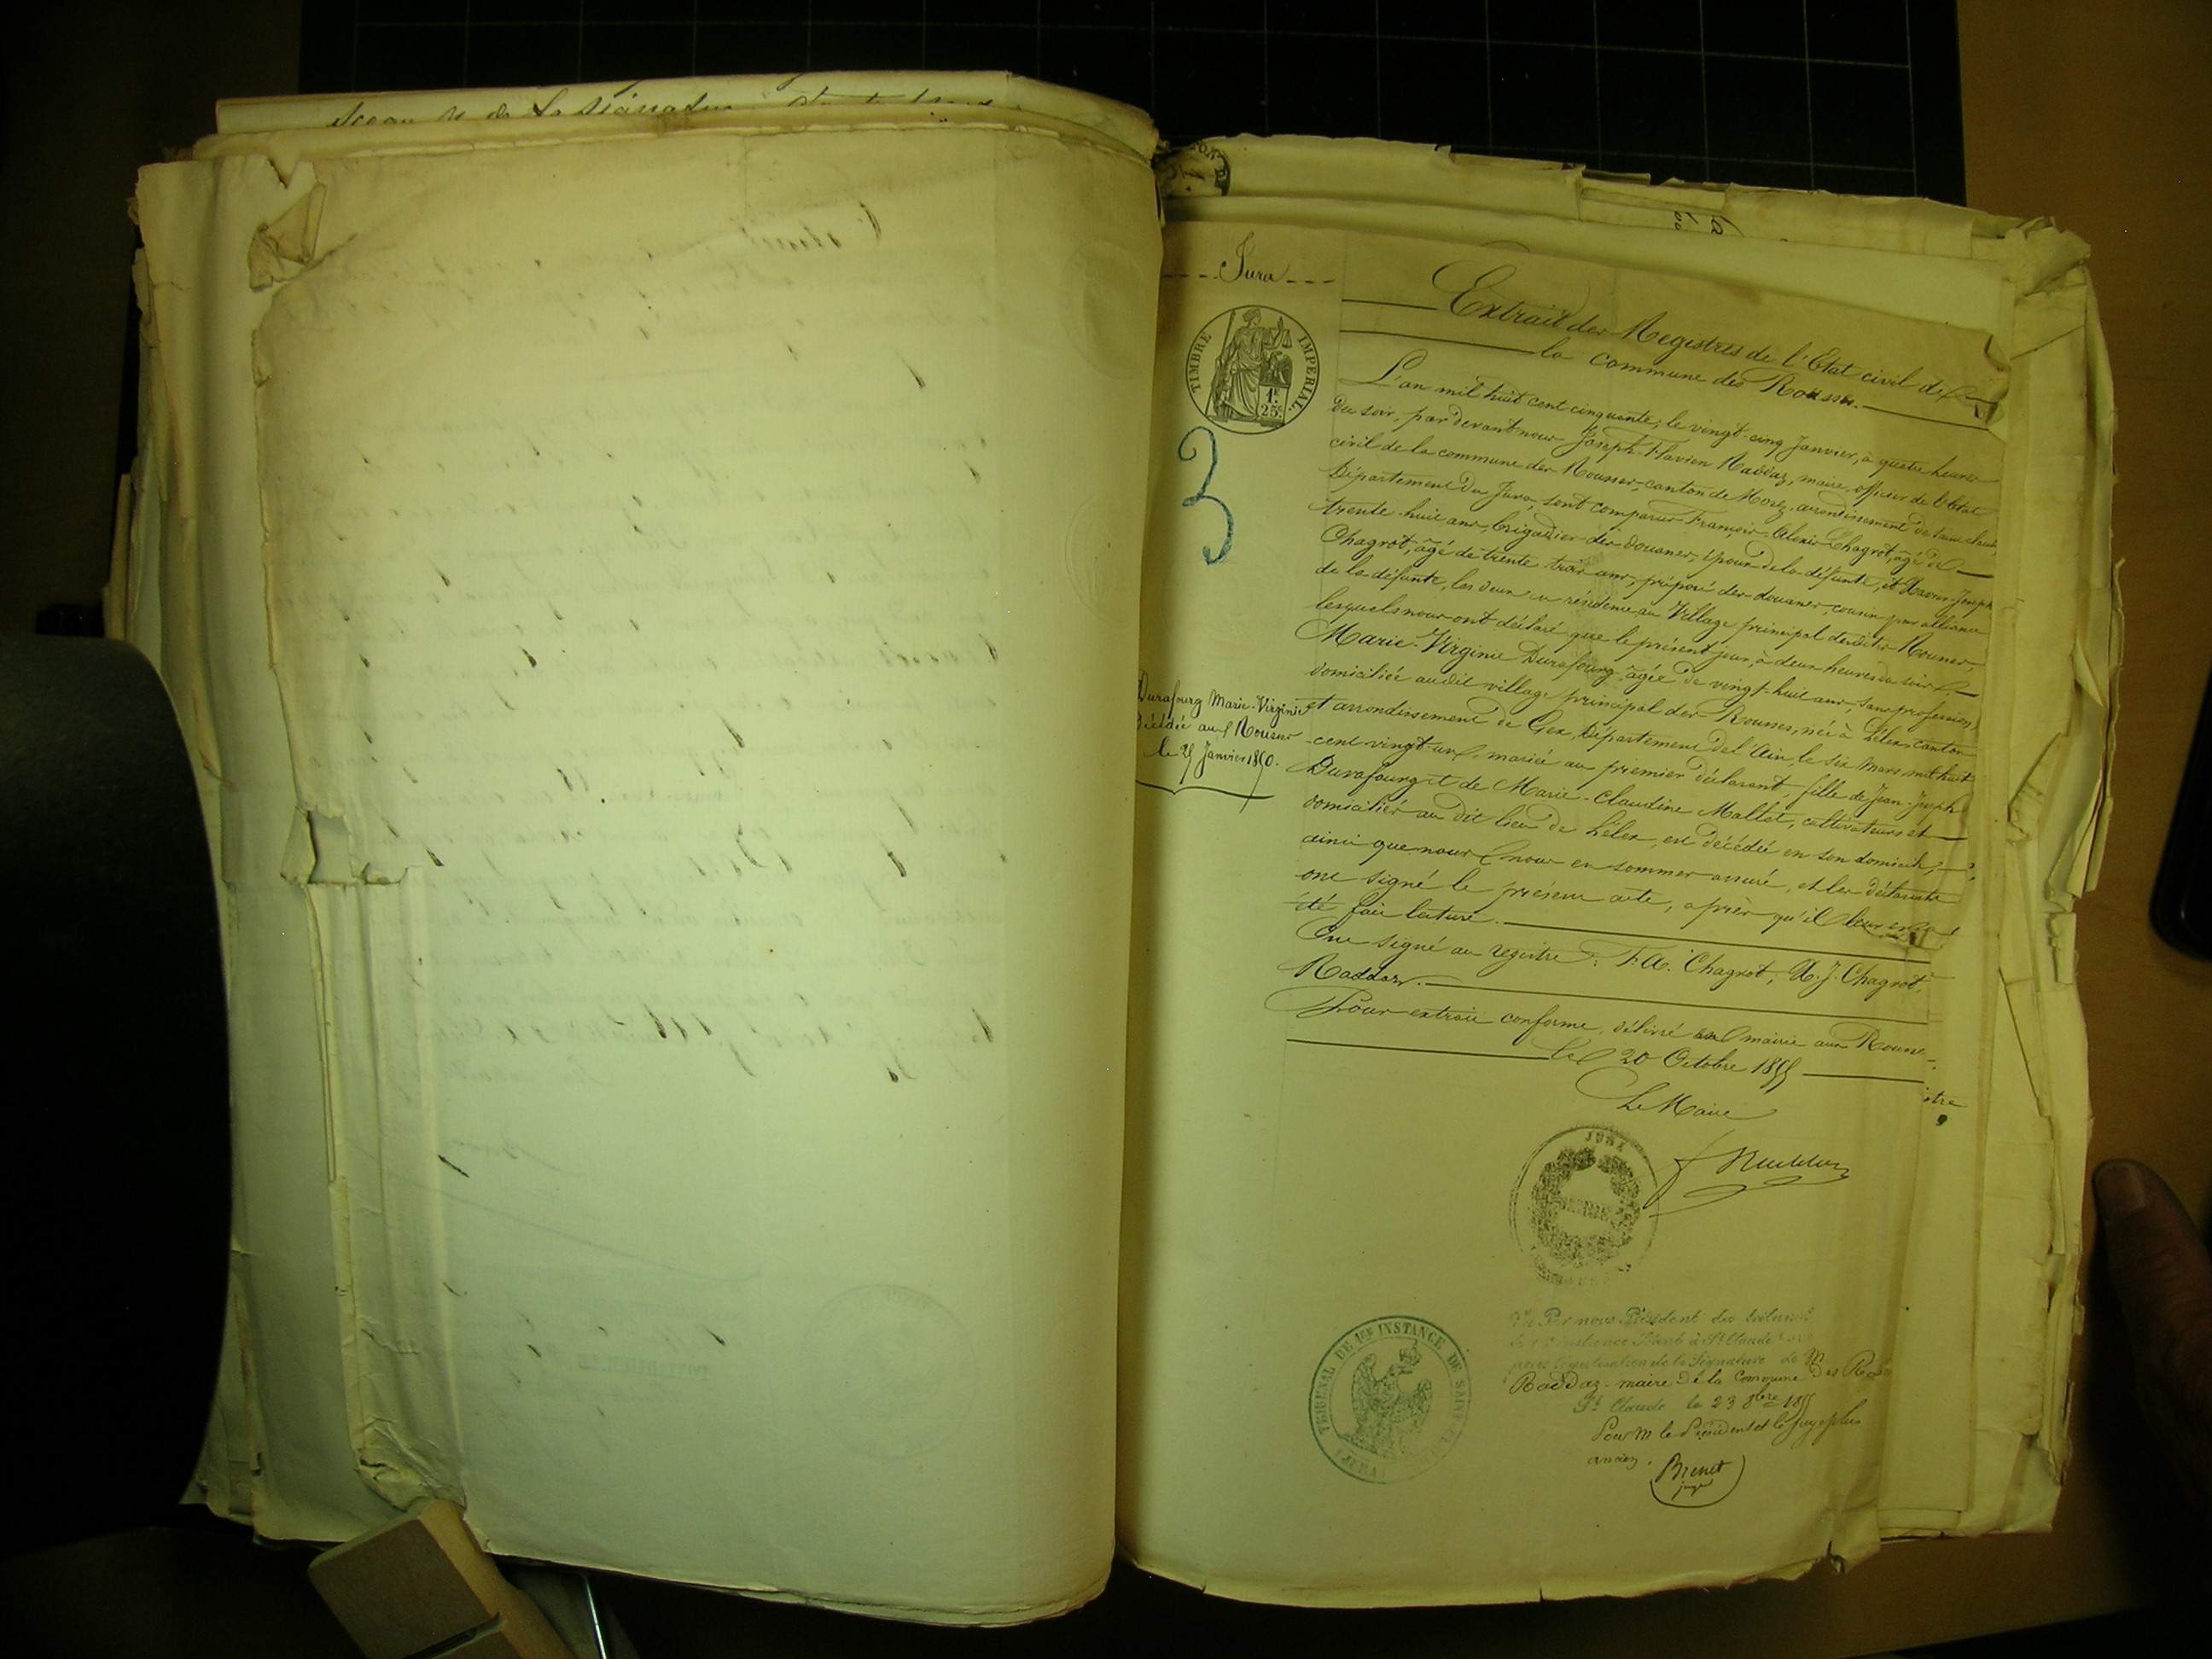 Jura
TIMBRE IMPERIAL
1f
25c
3
Extrait des Registres de l'Etat civil de
la commune des Rousses.
L'an mil huit cent cinquante, le vingt-cinq Janvier, à quatre heures
du soir, par devant nous Joseph-Flavien Raddaz, maire, officier de l'Etat
civil de la commune des Rousses, canton de Morez, arrondissement de Saint-Claude,
Département du Jura, sont comparus François-Alexis Chagrot, âgé de
trente-huit ans, brigadier des douanes, époux de la défunte, et Joseph
Chagrot, âgé de trente trois ans, préposé des douanes, cousin par alliance
de la défunte, les deux en résidence au Village principal desdites Rousses,
lesquels nous ont déclaré que le présent jour, à deux heures du soir,
Marie-Virginie Durafourg, âgée de vingt-huit ans, sans profession,
domiciliée au dit village principal des Rousses, née à Lélex, canton
et arrondissement de Gex, Département de l'Ain, le six mars mil huit
cent vingt-un, mariée au premier déclarant, fille de Jean-Joseph
Durafourg et de Marie-Claudine Mallet, cultivateurs et
domiciliés au dit lieu de Lélex, est décédée en son domicile,
ainsi que nous nous en sommes assuré, et les déclarants
ont signé le présent acte, après qu'il leur en a
été fait lecture.
Ont signé au registre: F. A. Chagrot, X. J. Chagrot,
Raddaz.
Pour extrait conforme, délivré en mairie aux Rousses,
le 20 Octobre 1855
Le Maire
Durafourg Marie-Virginie
Décédée aux Rousses
le 25 Janvier 1850.
JURA
TRIBUNAL DE 1ère INSTANCE DE SAINT
JURA
Vu Par nous Président du tribunal
de 1ère instance Séant à St Claude
pour légalisation de la Signature de Mr
Raddaz maire de la Commune des
St Claude le 23 8bre 1855
Pour M le Président et le juge plus
ancien.
juge